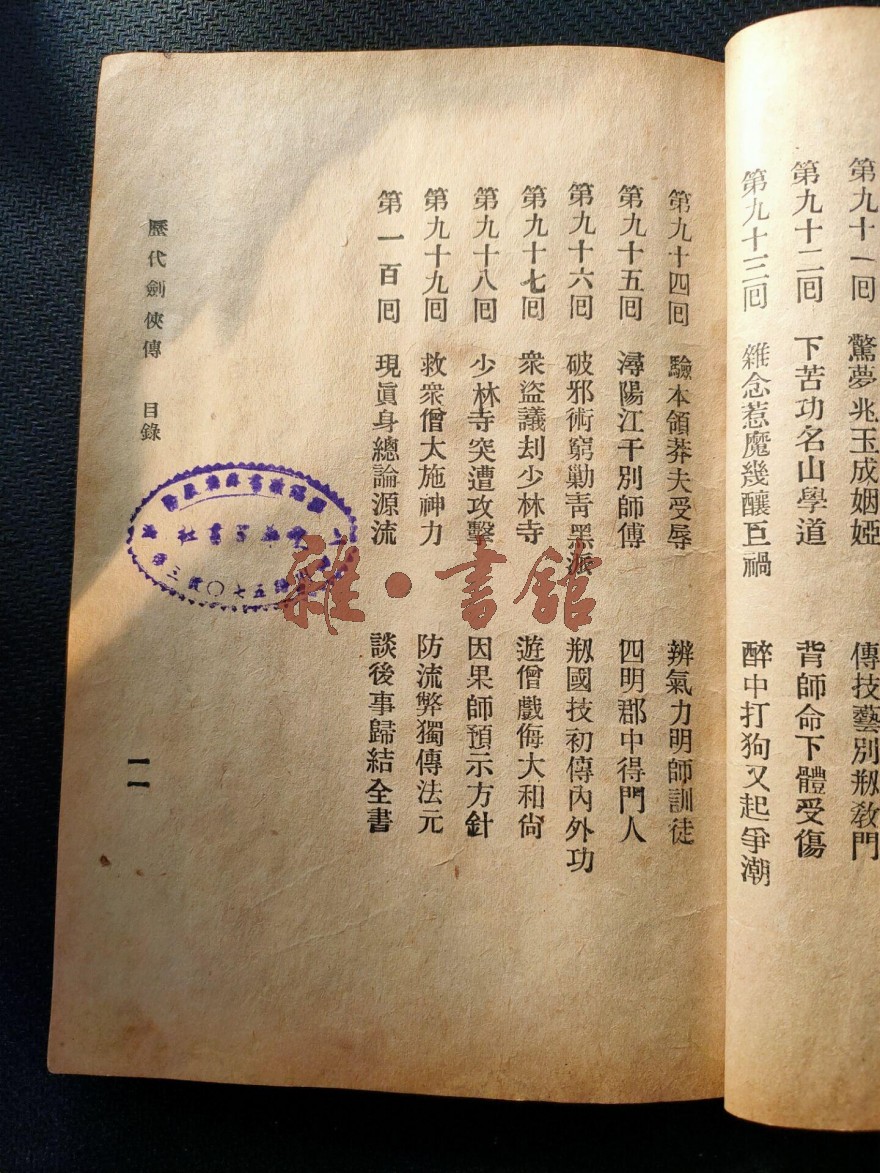 第九十一回 驚夢兆玉成姻婭 傳技藝別刱敎門
第九十二回 下苦功名山學道 背師命下體受傷
第九十三回 雜念惹魔幾釀巨禍 醉中打狗又起爭潮
第九十四回 驗本領莽夫受辱 辨氣力明師訓徒
第九十五回 潯陽江干別師傅 四明郡中得門人
第九十六回 破邪術窮勦靑黑派 刱國技初傳內外功
第九十七回 衆盜議刦少林寺 遊僧戲侮大和尙
第九十八回 少林寺突遭攻擊 因果師預示方針
第九十九回 救衆僧大施神力 防流弊獨傳法元
第一百回 現眞身總論源流 談後事歸結全書
歷代劍俠傳 目錄
一一
雜·書館